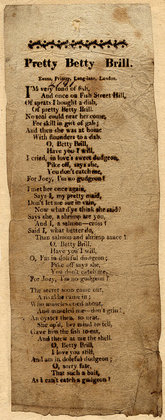 Pretty Betty Brill.
Evans, Printer, Long-lane, London.
I'M very fond of fish,
And once on Fish Street Hill,
Of sprats I bought a dish,
Of pretty Betty Brill.
No soul could near her come,
For skill in gut o' gab;
And then she was at home
With flounders to a dab.
O, Betty Brill,
Have you I will,
I cried, in love's sweet dudgeon,
Pike off, says she,
You don't catch me,
For Joey, I'm no gudgeon!
I met her once again,
Says I, my pretty maid,
Don't let me sue in vain,
Now what d'ye think she said?
Says she, a shrimp are you,
And I, a salmon—cross!
Said I, what better do,
Than salmon and shrimp sauce?
O, Betty Brill,
Have you I will,
O, I'm in doleful dudgeon;
Pike off, says she,
You don't catch me,
For Joey, I'm no gudgeon!
The secret soon came out,
A rival came in;
Who muscles cried about,
And muscled me—don't grin!
An oyster then, so neat,
She op'd, her mind to tell,
Gave him the fish to eat,
And threw at me the shell.
O, Betty Brill,
I love you still,
And am in doleful dudgeon;
O, sorry fate,
That such a bait,
As I can't catch a gudgeon!